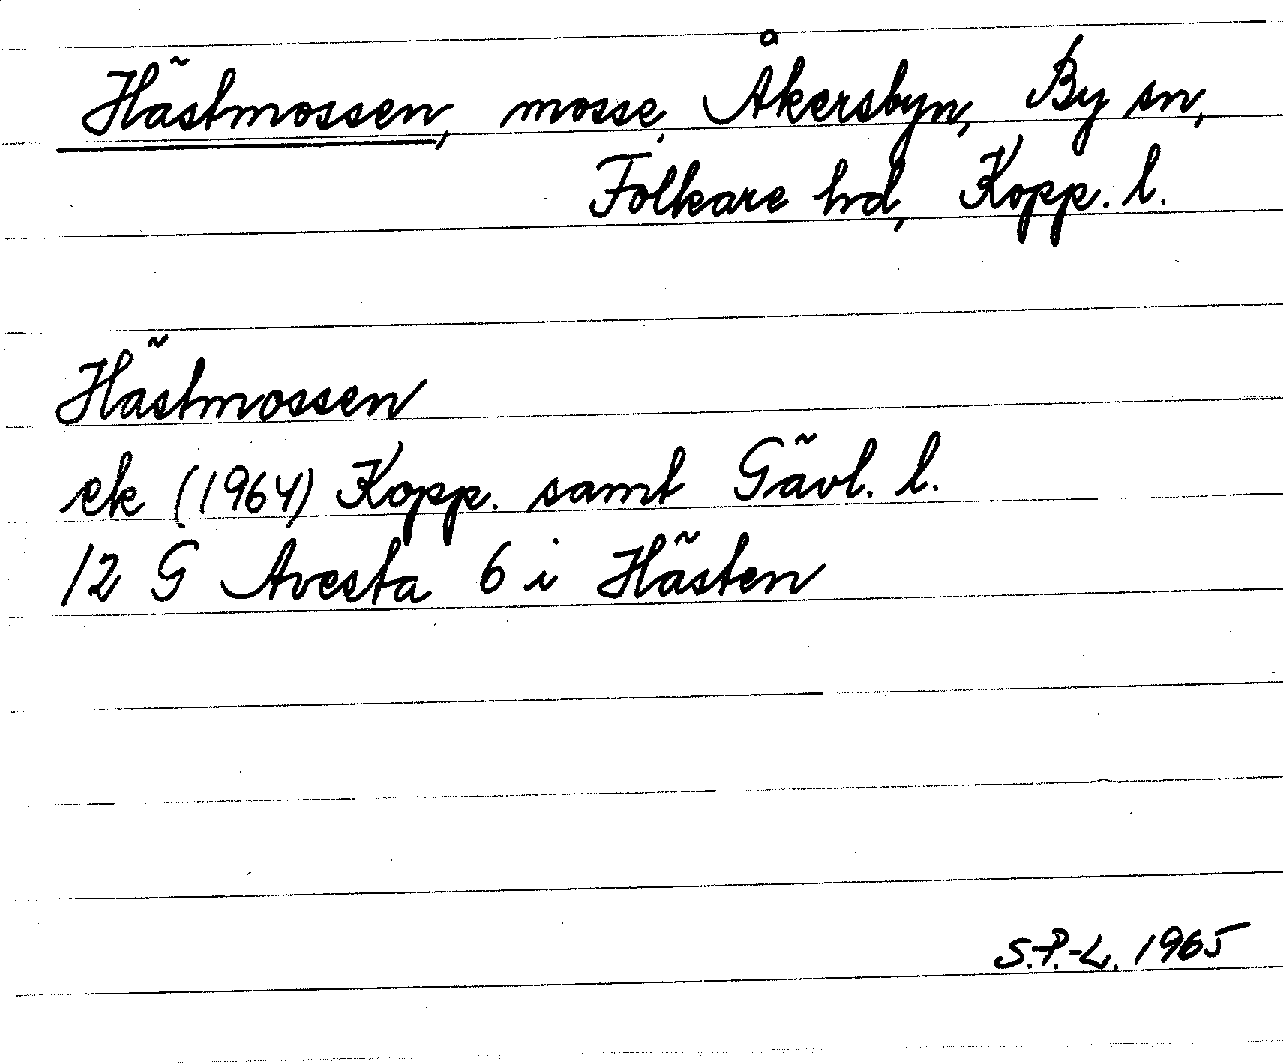 Hästmossen, mosse, Åkersbyn, By sn,
Folkare hd, Kopp. l.
Hästmossen
ek (1964) Kopp. samt Gävl. l.
12 G Avesta 6 i Hästen
S.P.-L. 1965